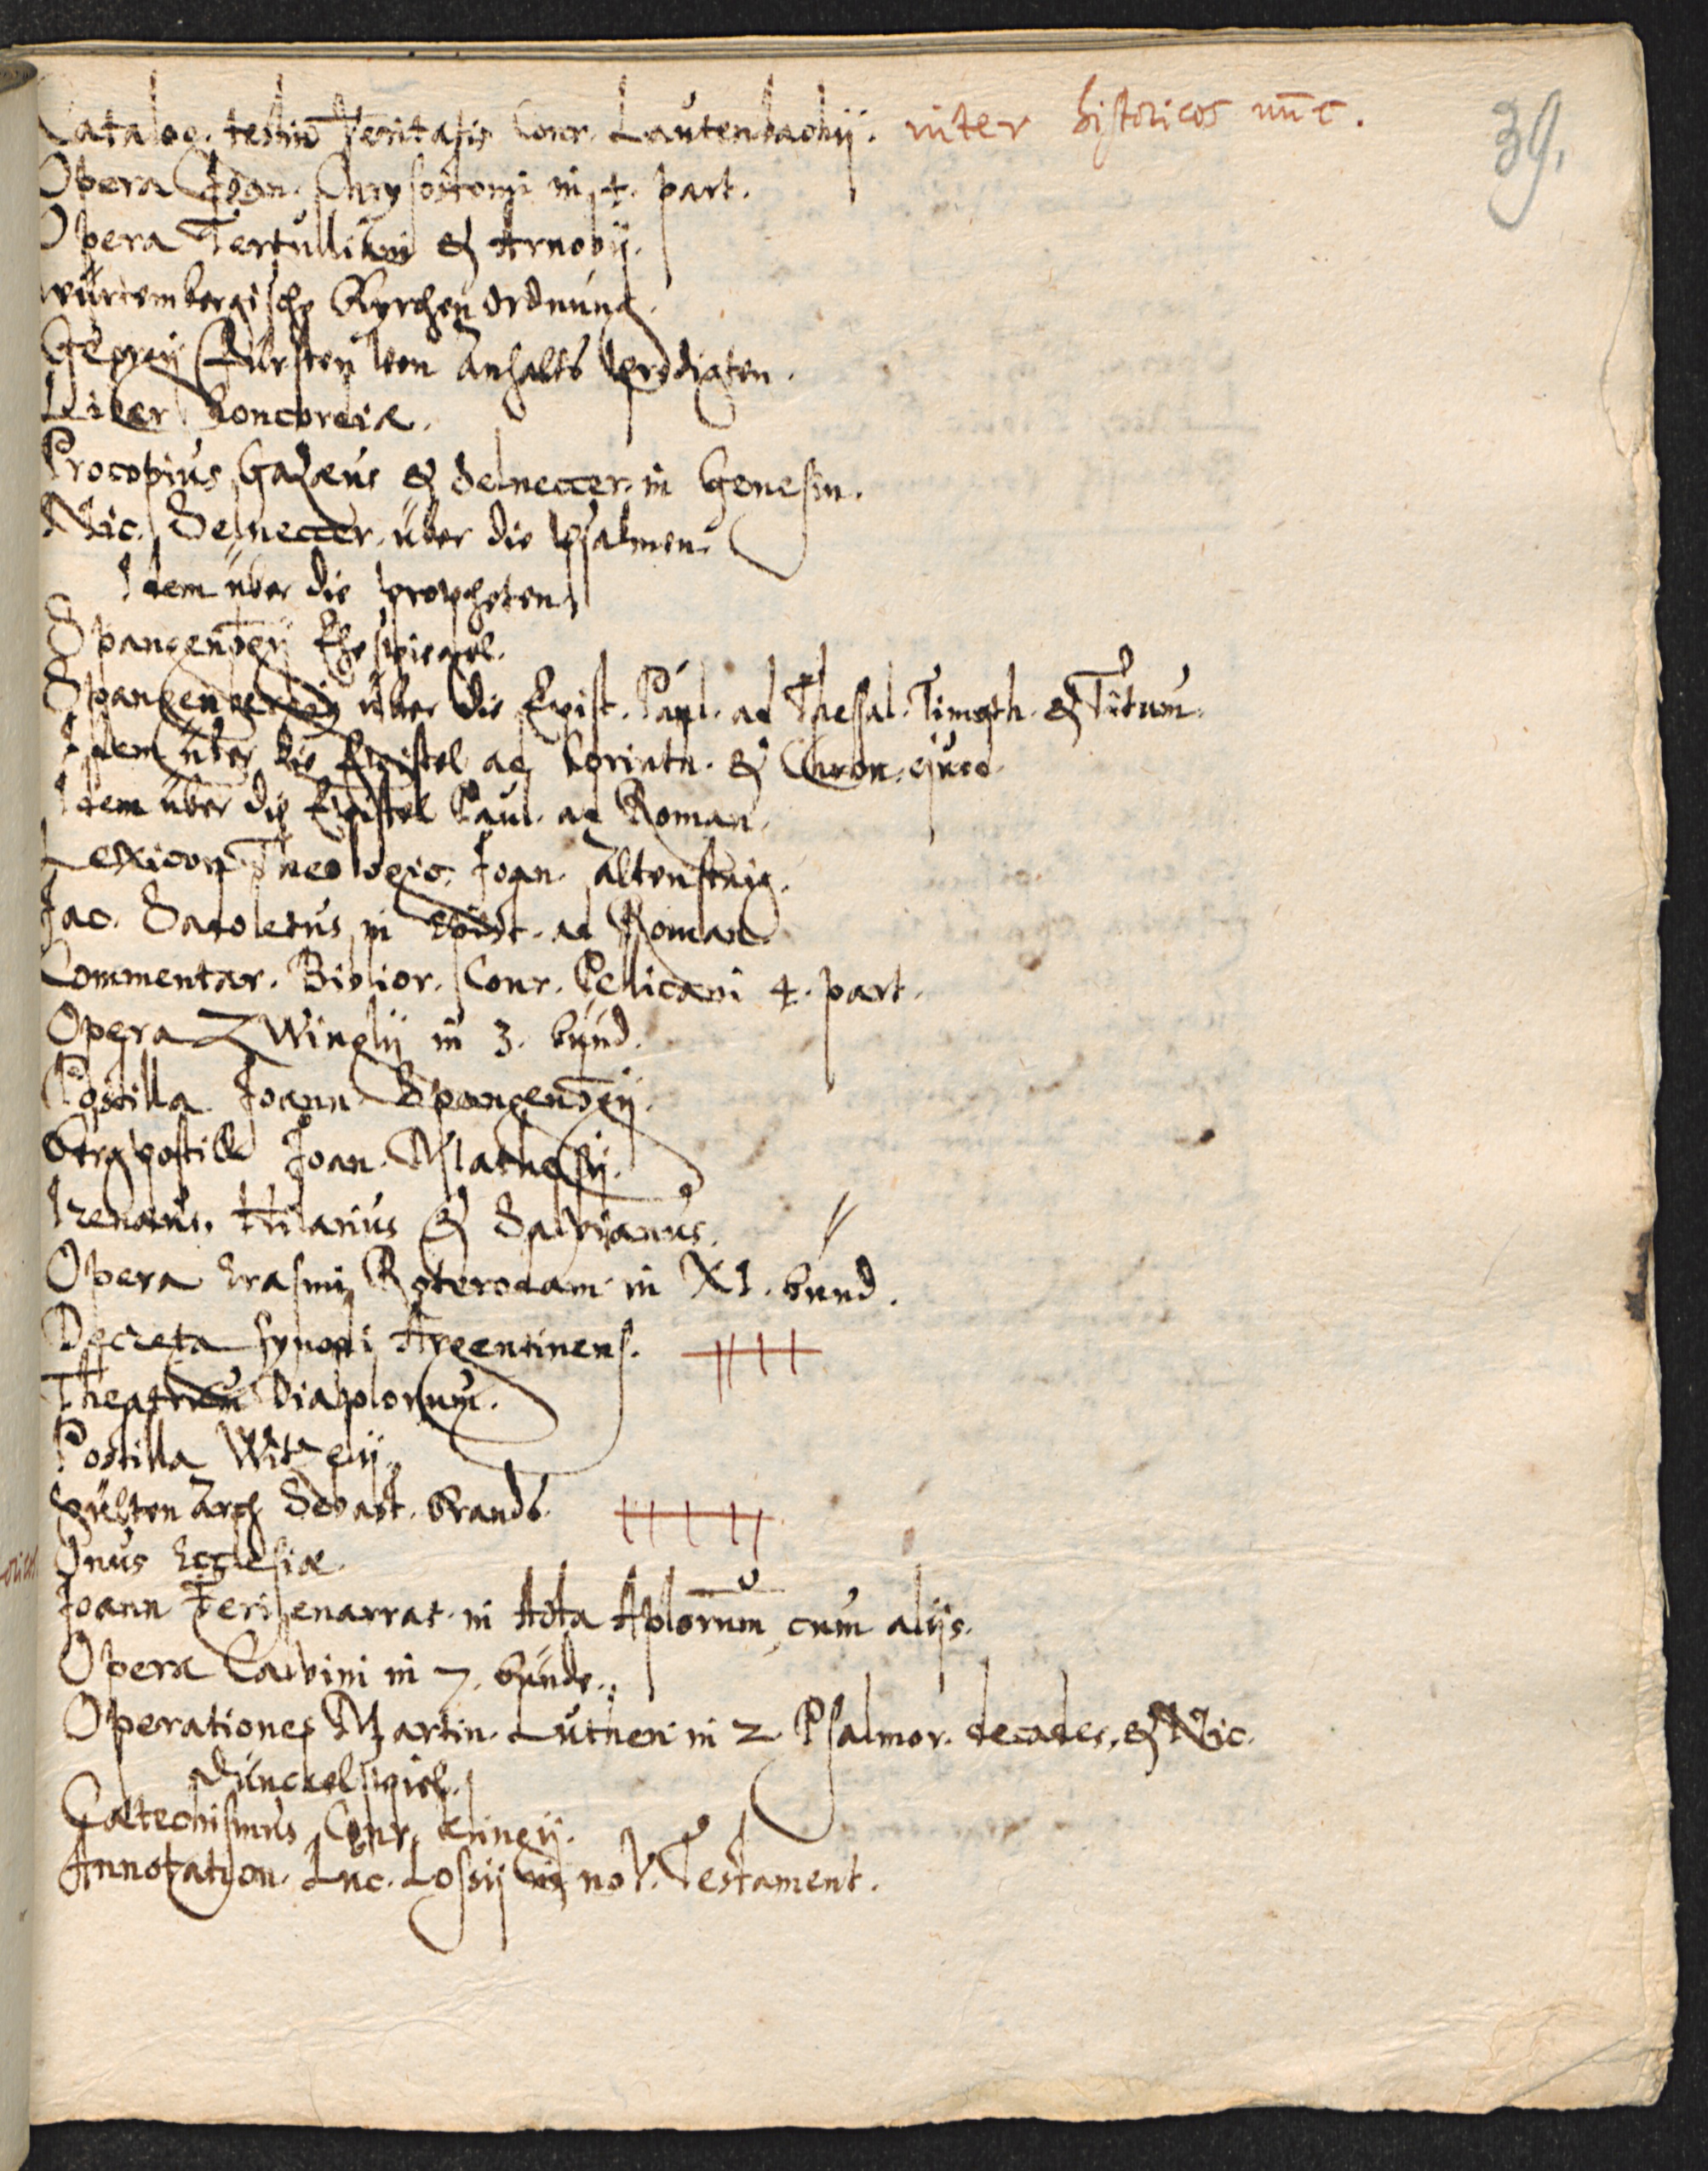 Catalog. testiū Veritatis Conr. Lautenbachij. inter historicos nūc.
39.
Opera Joan. Chrysostomi in 4. part.
Opera Tertulliani & Arnobij.
Würtembergische Kyrchen ordnung.
Georgij Fürsten von Anhalts predigten.
Liber Concordiæ.
Procopius Gazæus & Selneccer. in Genesin.
Nic. Selneccer. über die Psalmen.
Idem über die propheten.
Spangenbergij Ehespiegel.
Spangenbergij über die Epist. Paul. ad Thessal. Timoth. & Titum.
Idem über die Epistel ad Corinth. & Chron.
Idem über die Epistel Paul. ad Roman.
Lexicon Theologic. Joan. Altenstaig.
Jac. Sadoletus in Epist. ad Roman.
Commentar. Biblior. Conr. Pelicani 4. part.
Opera Zwinglij in 3. bünd.
Postilla Joann. Spangenbergij.
Bergpostill Joan. Mathesij.
Irenæus. Hilarius & Salvianus.
Opera Erasmi Roterodam. in XI. bünd.
Decreta synodi Argentinens.
Theatrum Diabolorum.
Postilla Witzelij.
Gülten Arch Sebast. Brands.
Onus Ecclesiæ
Joann Feri enarrat. in Acta Aplorūm cum alijs.
Opera Calvini in 7. bünde.
Operationes Martin. Lutheri in 2 Psalmor. decades, & Nic.
Dünckelspiel.
Catechismus Conr. Clingij.
Annotation. Luc. Lossij in nov. Testament.